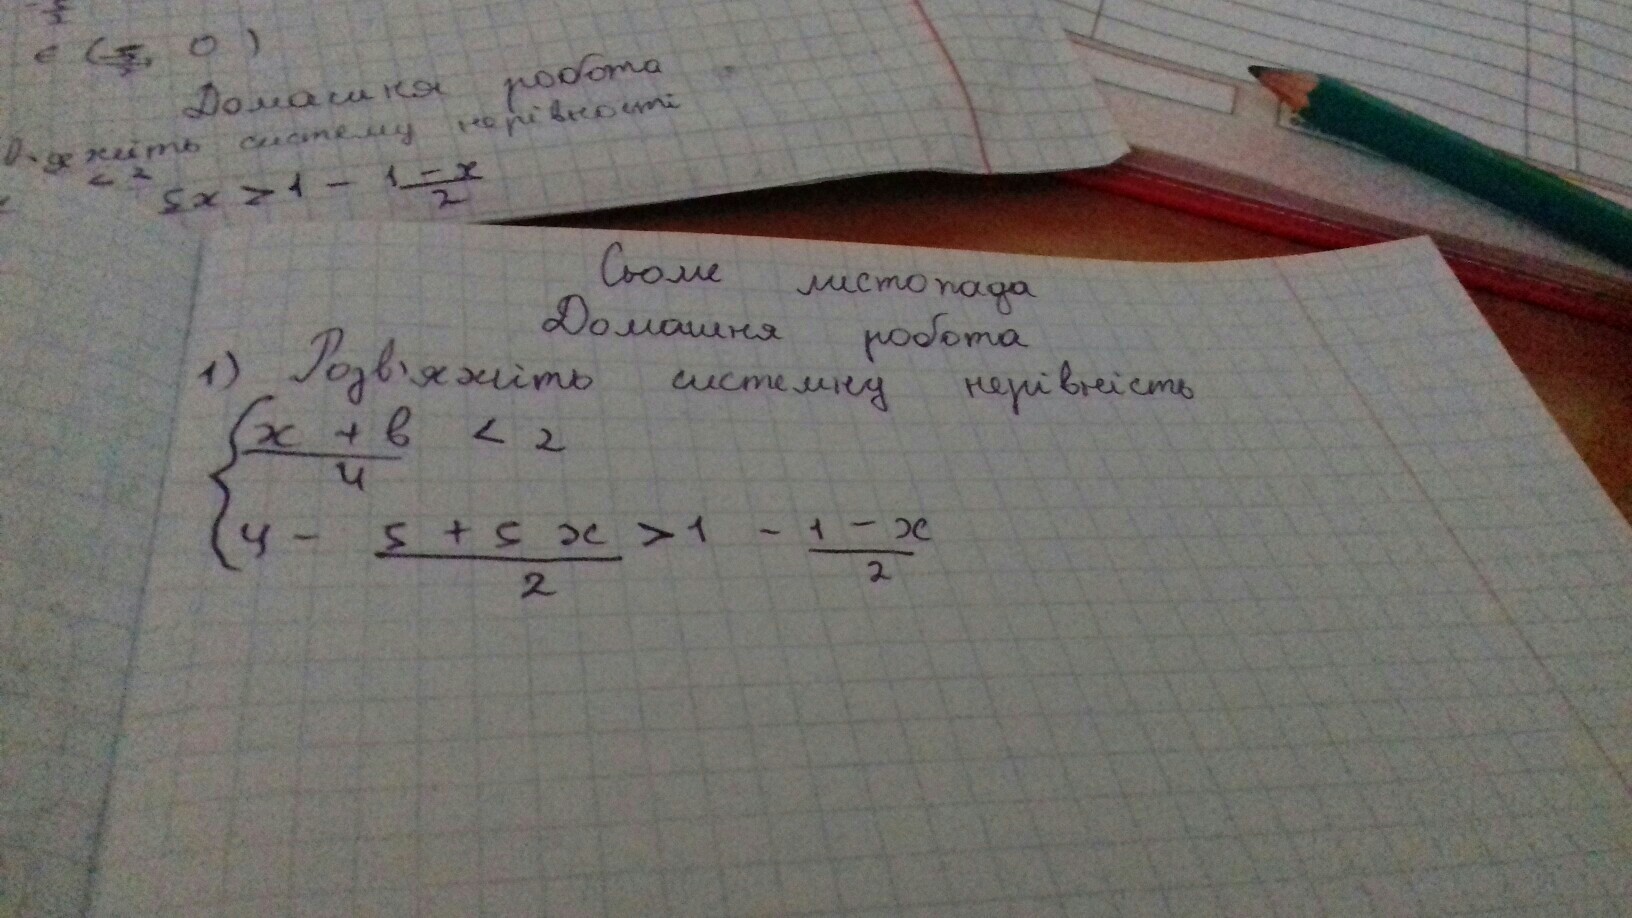 є (-5/3, 0)
Домашня робота
систему нерівності
< 2
5x > 1 - 1 - x
2
Сьоме листопада
Домашня робота
1) Розв'яжіть системну нерівність
x + 6 < 2
4
4 - 5 + 5 x > 1 - 1 - x
2 2